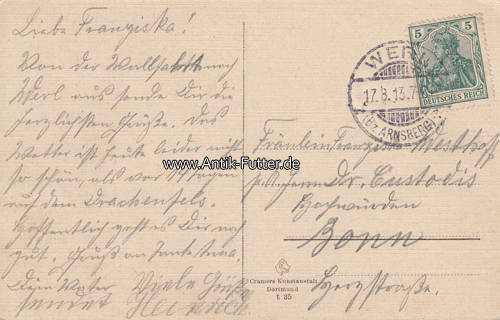 Liebe Franziska!
Von der Wallfahrt nach
Werl aus sende Dir die
herzlichsten Grüße. Das
Wetter ist heute leider nicht
so schön, als vor 8 Tagen
auf dem Drachenfels.
Hoffentlich geht es Dir noch
gut. Gruß an Tante Anna.
Dein Vater
Viele Grüße
sendet Heinrich
WERL
17.8.13.7
(BZ. ARNSBERG)
5 5
DEUTSCHES REICH
Fräulein Franziska Westhoff
p. Adr. Herrn Dr. Custodis
Hochwürden
Bonn
Herzstraße.
Cramers Kunstanstalt
Dortmund
t 35
www.Antik-Futter.de